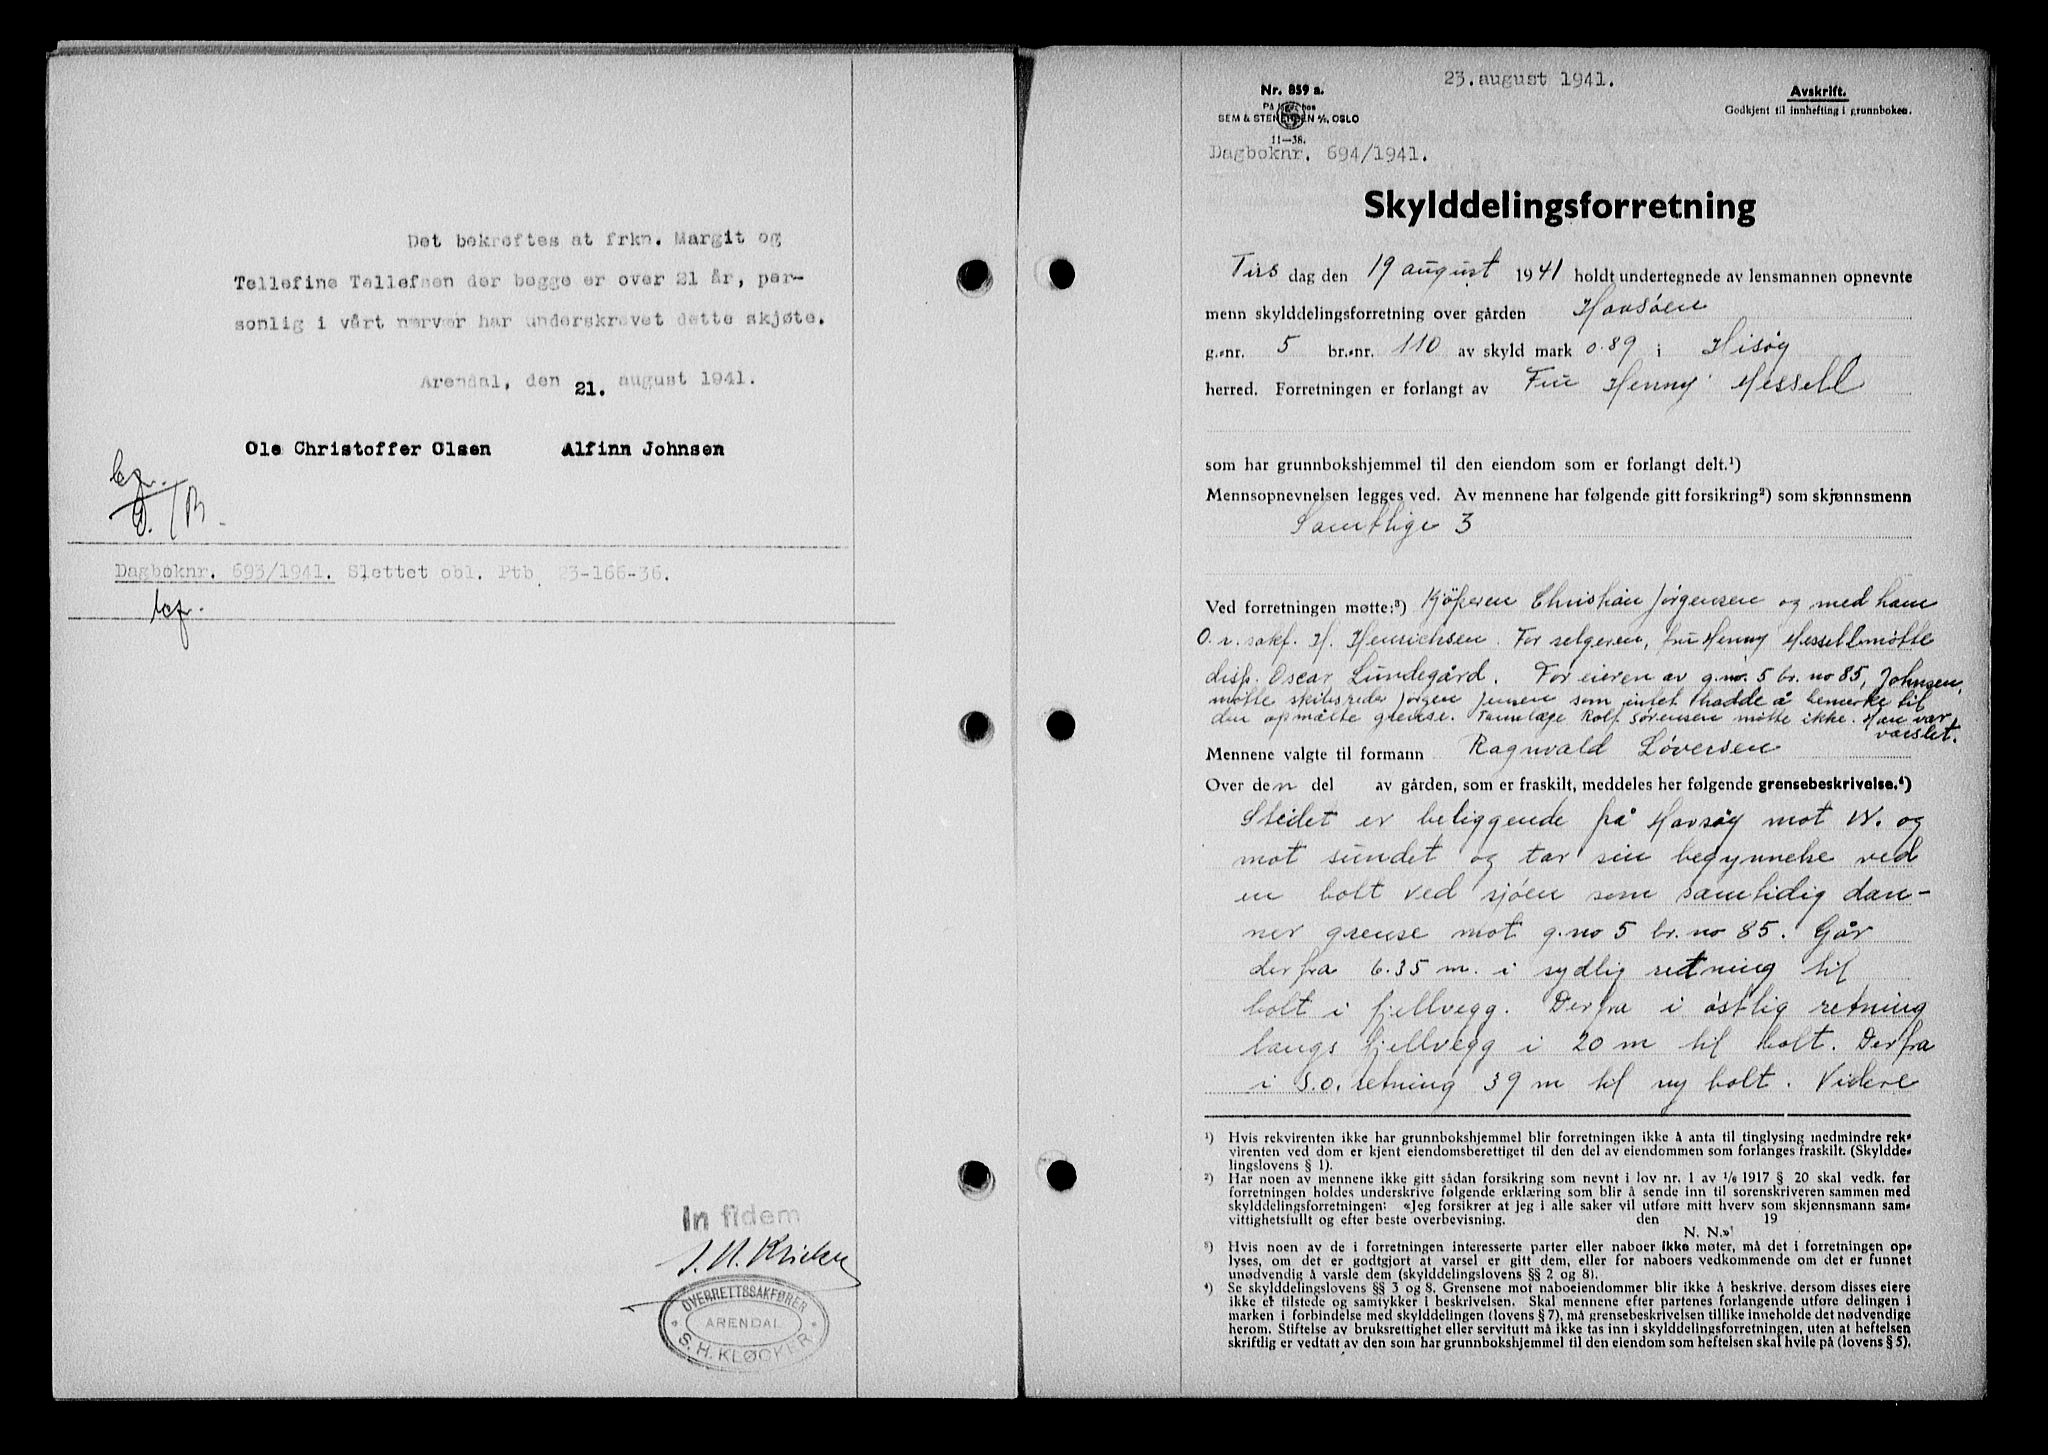 Det bekreftes at frkn. Margit og
Tellefine Tellefsen der begge er over 21 år, per-
sonlig i vårt nærvær har underskrevet dette skjøte.
Arendal, den 21. august 1941.
Ole Christoffer Olsen Alfinn Johnsen
Dagboknr. 693/1941. Slettet obl. Ptb 23-166-36.
In fidem
OVERRETTSSAKFØRER
ARENDAL
S. H. KLØCKER
23. august 1941.
Nr. 859 a.
På lager hos
SEM & STENERSEN A/S, OSLO
11—38.
Avskrift.
Godkjent til innhefting i grunnboken.
Dagboknr. 694/1941.
Skylddelingsforretning
Tirs dag den 19 august 1941 holdt undertegnede av lensmannen opnevnte
menn skylddelingsforretning over gården Havsöen
g.-nr. 5 br.-nr. 110 av skyld mark 0.89 i Hisøy
herred. Forretningen er forlangt av Fru Henny Messell
som har grunnbokshjemmel til den eiendom som er forlangt delt.¹)
Mennsopnevnelsen legges ved. Av mennene har følgende gitt forsikring²) som skjønnsmenn
Samtlige 3
Ved forretningen møtte:³) Kjöperen Christian Jørgensen og med ham
O.r.sakf. H. Henrichsen. For selgeren, fru Henny Messell møtte
disp. Oscar Lundegård. For eieren av g.no. 5 br. no 85, Johnsen,
møtte skibsreder Jørgen Jensen som intet hadde å bemerke til
den opmålte grense. Tannlæge Rolf Sørensen møtte ikke. Han var
varslet.
Mennene valgte til formann Ragnvald Löversen
Over den del av gården, som er fraskilt, meddeles her følgende grensebeskrivelse.⁴)
Stedet er beliggende på Havsøy mot W. og
mot sundet og tar sin begynnelse ved
en bolt ved sjöen som samtidig dan-
ner grense mot g.no 5 br. no 85. Går
derfra 6.35 m. i sydlig retning til
bolt i fjellvegg. Derfra i östlig retning
langs fjellvegg i 20 m til bolt. Derfra
i S.O. retning 39 m til ny bolt. Videre
¹) Hvis rekvirenten ikke har grunnbokshjemmel blir forretningen ikke å anta til tinglysing medmindre rek-
virenten ved dom er kjent eiendomsberettiget til den del av eiendommen som forlanges fraskilt. (Skyldde-
lingslovens § 1).
²) Har noen av mennene ikke gitt sådan forsikring som nevnt i lov nr. 1 av 1/6 1917 § 20 skal vedk. før
forretningen holdes underskrive følgende erklæring som blir å sende inn til sorenskriveren sammen med
skylddelingsforretningen: «Jeg forsikrer at jeg i alle saker vil utføre mitt hverv som skjønnsmann sam-
vittighetsfullt og efter beste overbevisning. den 19
N. N.»
³) Hvis noen av de i forretningen interesserte parter eller naboer ikke møter, må det i forretningen op-
lyses, om det er godtgjort at varsel er gitt dem, eller for naboers vedkommende om det er funnet
unødvendig å varsle dem (skylddelingslovens §§ 2 og 8).
⁴) Se skylddelingslovens §§ 3 og 8. Grensene mot naboeiendommer blir ikke å beskrive, dersom disses eiere
ikke er tilstede og samtykker i beskrivelsen. Skal mennene efter partenes forlangende utføre delingen i
marken i forbindelse med skylddelingen (lovens § 7), må grensebeskrivelsen tillike inneholde det nødvendige
herom. Stiftelse av bruksrettighet eller servitutt må ikke tas inn i skylddelingsforretningen, uten at heftelsen
skriftlig er vedtatt av den som har grunnbokshjemmel til den eiendom som heftelsen skal hvile på (lovens § 5).